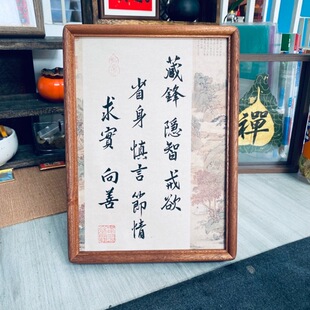 藏鋒 隱智 戒欲
省身 慎言 節情
求實 向善
禪